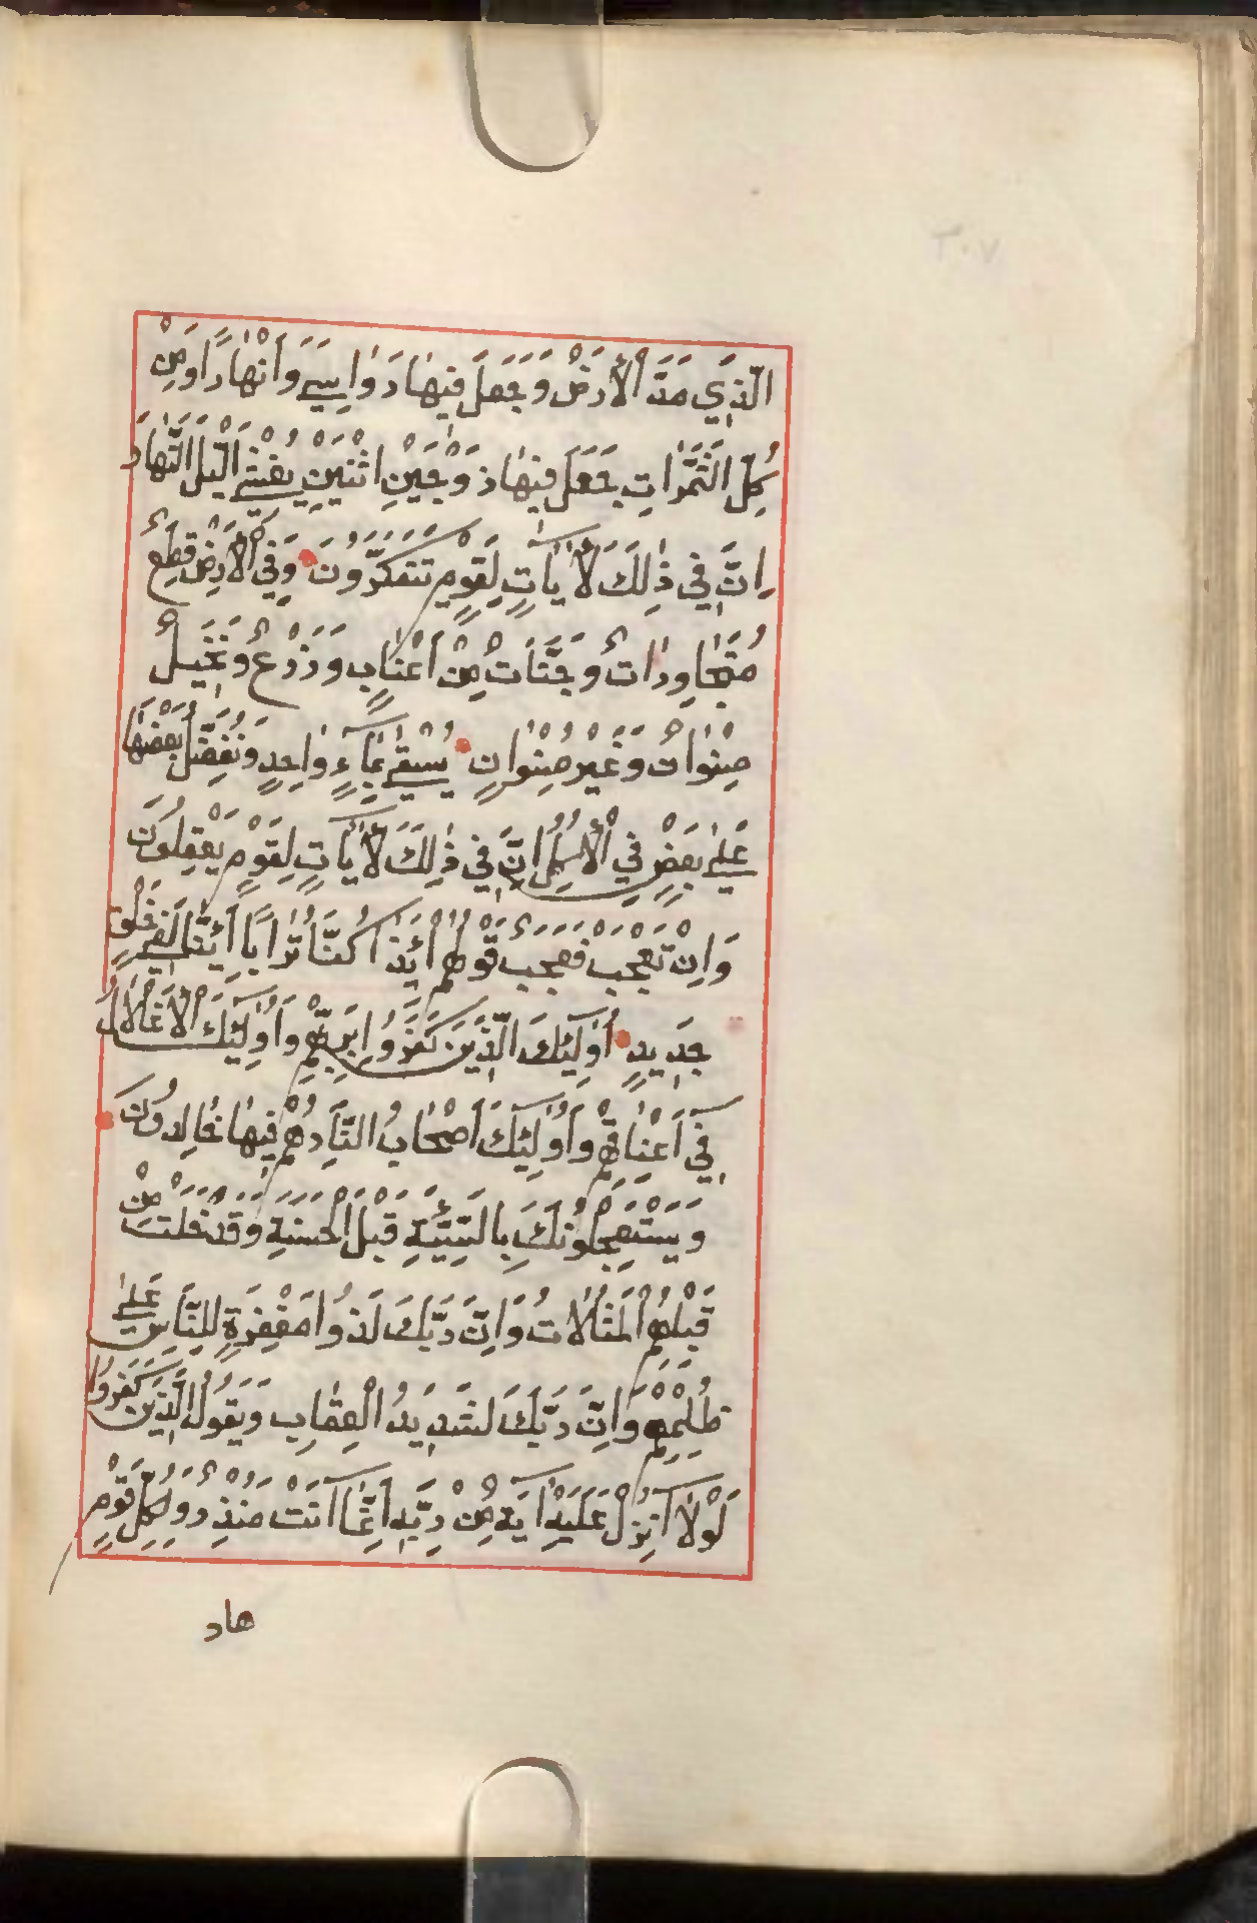 ٣٠٧
الَّذِي مَدَّ الْأَرْضَ وَجَعَلَ فِيهَا رَوَاسِيَ وَأَنْهَارًا وَمِنْ
كُلِّ الثَّمَرَاتِ جَعَلَ فِيهَا زَوْجَيْنِ اثْنَيْنِ يُغْشِي الَّيْلَ النَّهَارَ
اِنَّ فِي ذٰلِكَ لَأٰيَاتٍ لِقَوْمٍ يَتَفَكَّرُونَ وَفِي الْأَرْضِ قِطَعٌ
مُتَجَاوِرَاتٌ وَجَنَّاتٌ مِنْ اَعْنَابٍ وَزَرْعٌ وَنَخِيلٌ
صِنْوَانٌ وَغَيْرُ صِنْوَانٍ يُسْقٰى بِمَاءٍ وَاحِدٍ وَنُفَضِّلُ بَعْضَهَا
عَلٰى بَعْضٍ فِي الْأُكُلِ اِنَّ فِي ذٰلِكَ لَأٰيَاتٍ لِقَوْمٍ يَعْقِلُونَ
وَاِنْ تَعْجَبْ فَعَجَبٌ قَوْلُهُمْ أَئِذَا كُنَّا تُرَابًا أَئِنَّا لَفِي خَلْقٍ
جَدِيدٍ أُولٰئِكَ الَّذِينَ كَفَرُوا بِرَبِّهِمْ وَأُولٰئِكَ الْأَغْلَالُ
فِي اَعْنَاقِهِمْ وَأُولٰئِكَ اَصْحَابُ النَّارِ هُمْ فِيهَا خَالِدُونَ
وَيَسْتَعْجِلُونَكَ بِالسَّيِّئَةِ قَبْلَ الْحَسَنَةِ وَقَدْ خَلَتْ مِنْ
قَبْلِهِمُ الْمَثُلَاتُ وَاِنَّ رَبَّكَ لَذُوا مَغْفِرَةٍ لِلنَّاسِ عَلٰى
ظُلْمِهِمْ وَاِنَّ رَبَّكَ لَشَدِيدُ الْعِقَابِ وَيَقُولُ الَّذِينَ كَفَرُوا
لَوْلَا اُنْزِلَ عَلَيْهِ اٰيَةٌ مِنْ رَبِّهِ اِنَّمَا اَنْتَ مُنْذِرٌ وَلِكُلِّ قَوْمٍ
هاد